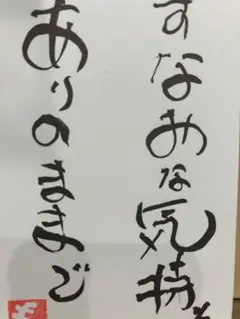 すなおな気持
ありのままで